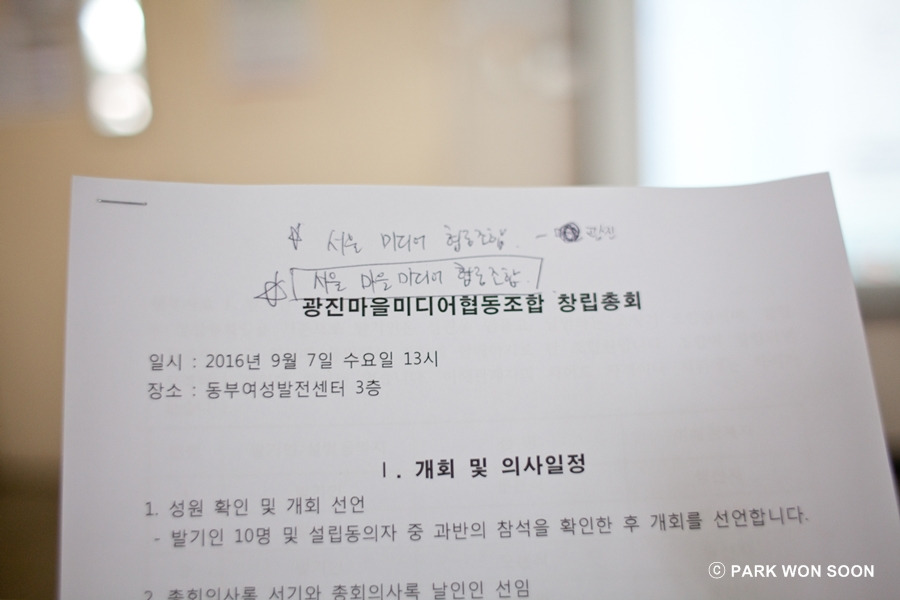 ☆ 서울 미디어 협동조합. - 광진
☆ 서울 마을미디어 협동조합.
광진마을미디어협동조합 창립총회
일시 : 2016년 9월 7일 수요일 13시
장소 : 동부여성발전센터 3층
Ⅰ. 개회 및 의사일정
1. 성원 확인 및 개회 선언
- 발기인 10명 및 설립동의자 중 과반의 참석을 확인한 후 개회를 선언합니다.
2. 총회의사록 서기와 총회의사록 날인인 선임
ⓒ PARK WON SOON